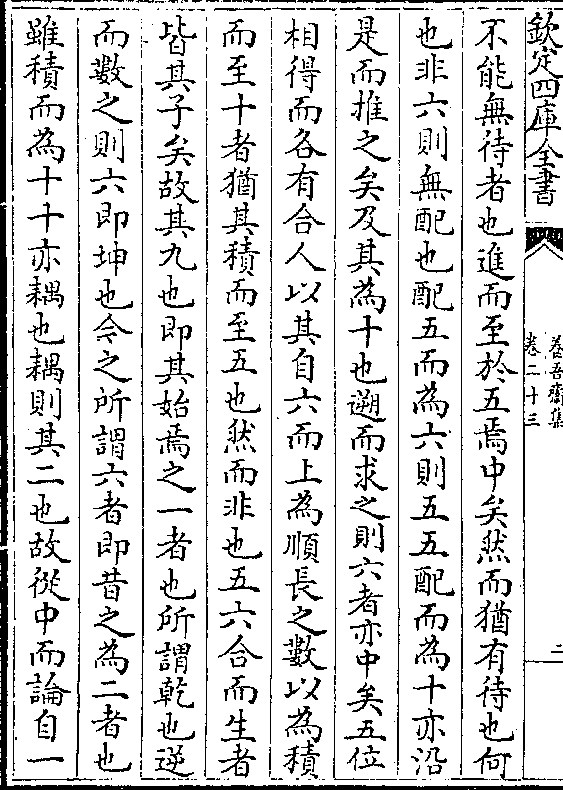 欽定四庫全書
養吾齋集
卷二十三
二
不能無待者也進而至於五焉中矣然而猶有待也何
也非六則無配也配五而為六則五五配而為十亦沿
是而推之矣及其為十也遡而求之則六者亦中矣五位
相得而各有合人以其自六而上為順長之數以為積
而至十者猶其積而至五也然而非也五六合而生者
皆其子矣故其九也即其始焉之一者也所謂乾也逆
而數之則六即坤也今之所謂六者即昔之為二者也
雖積而為十十亦耦也耦則其二也故從中而論自一